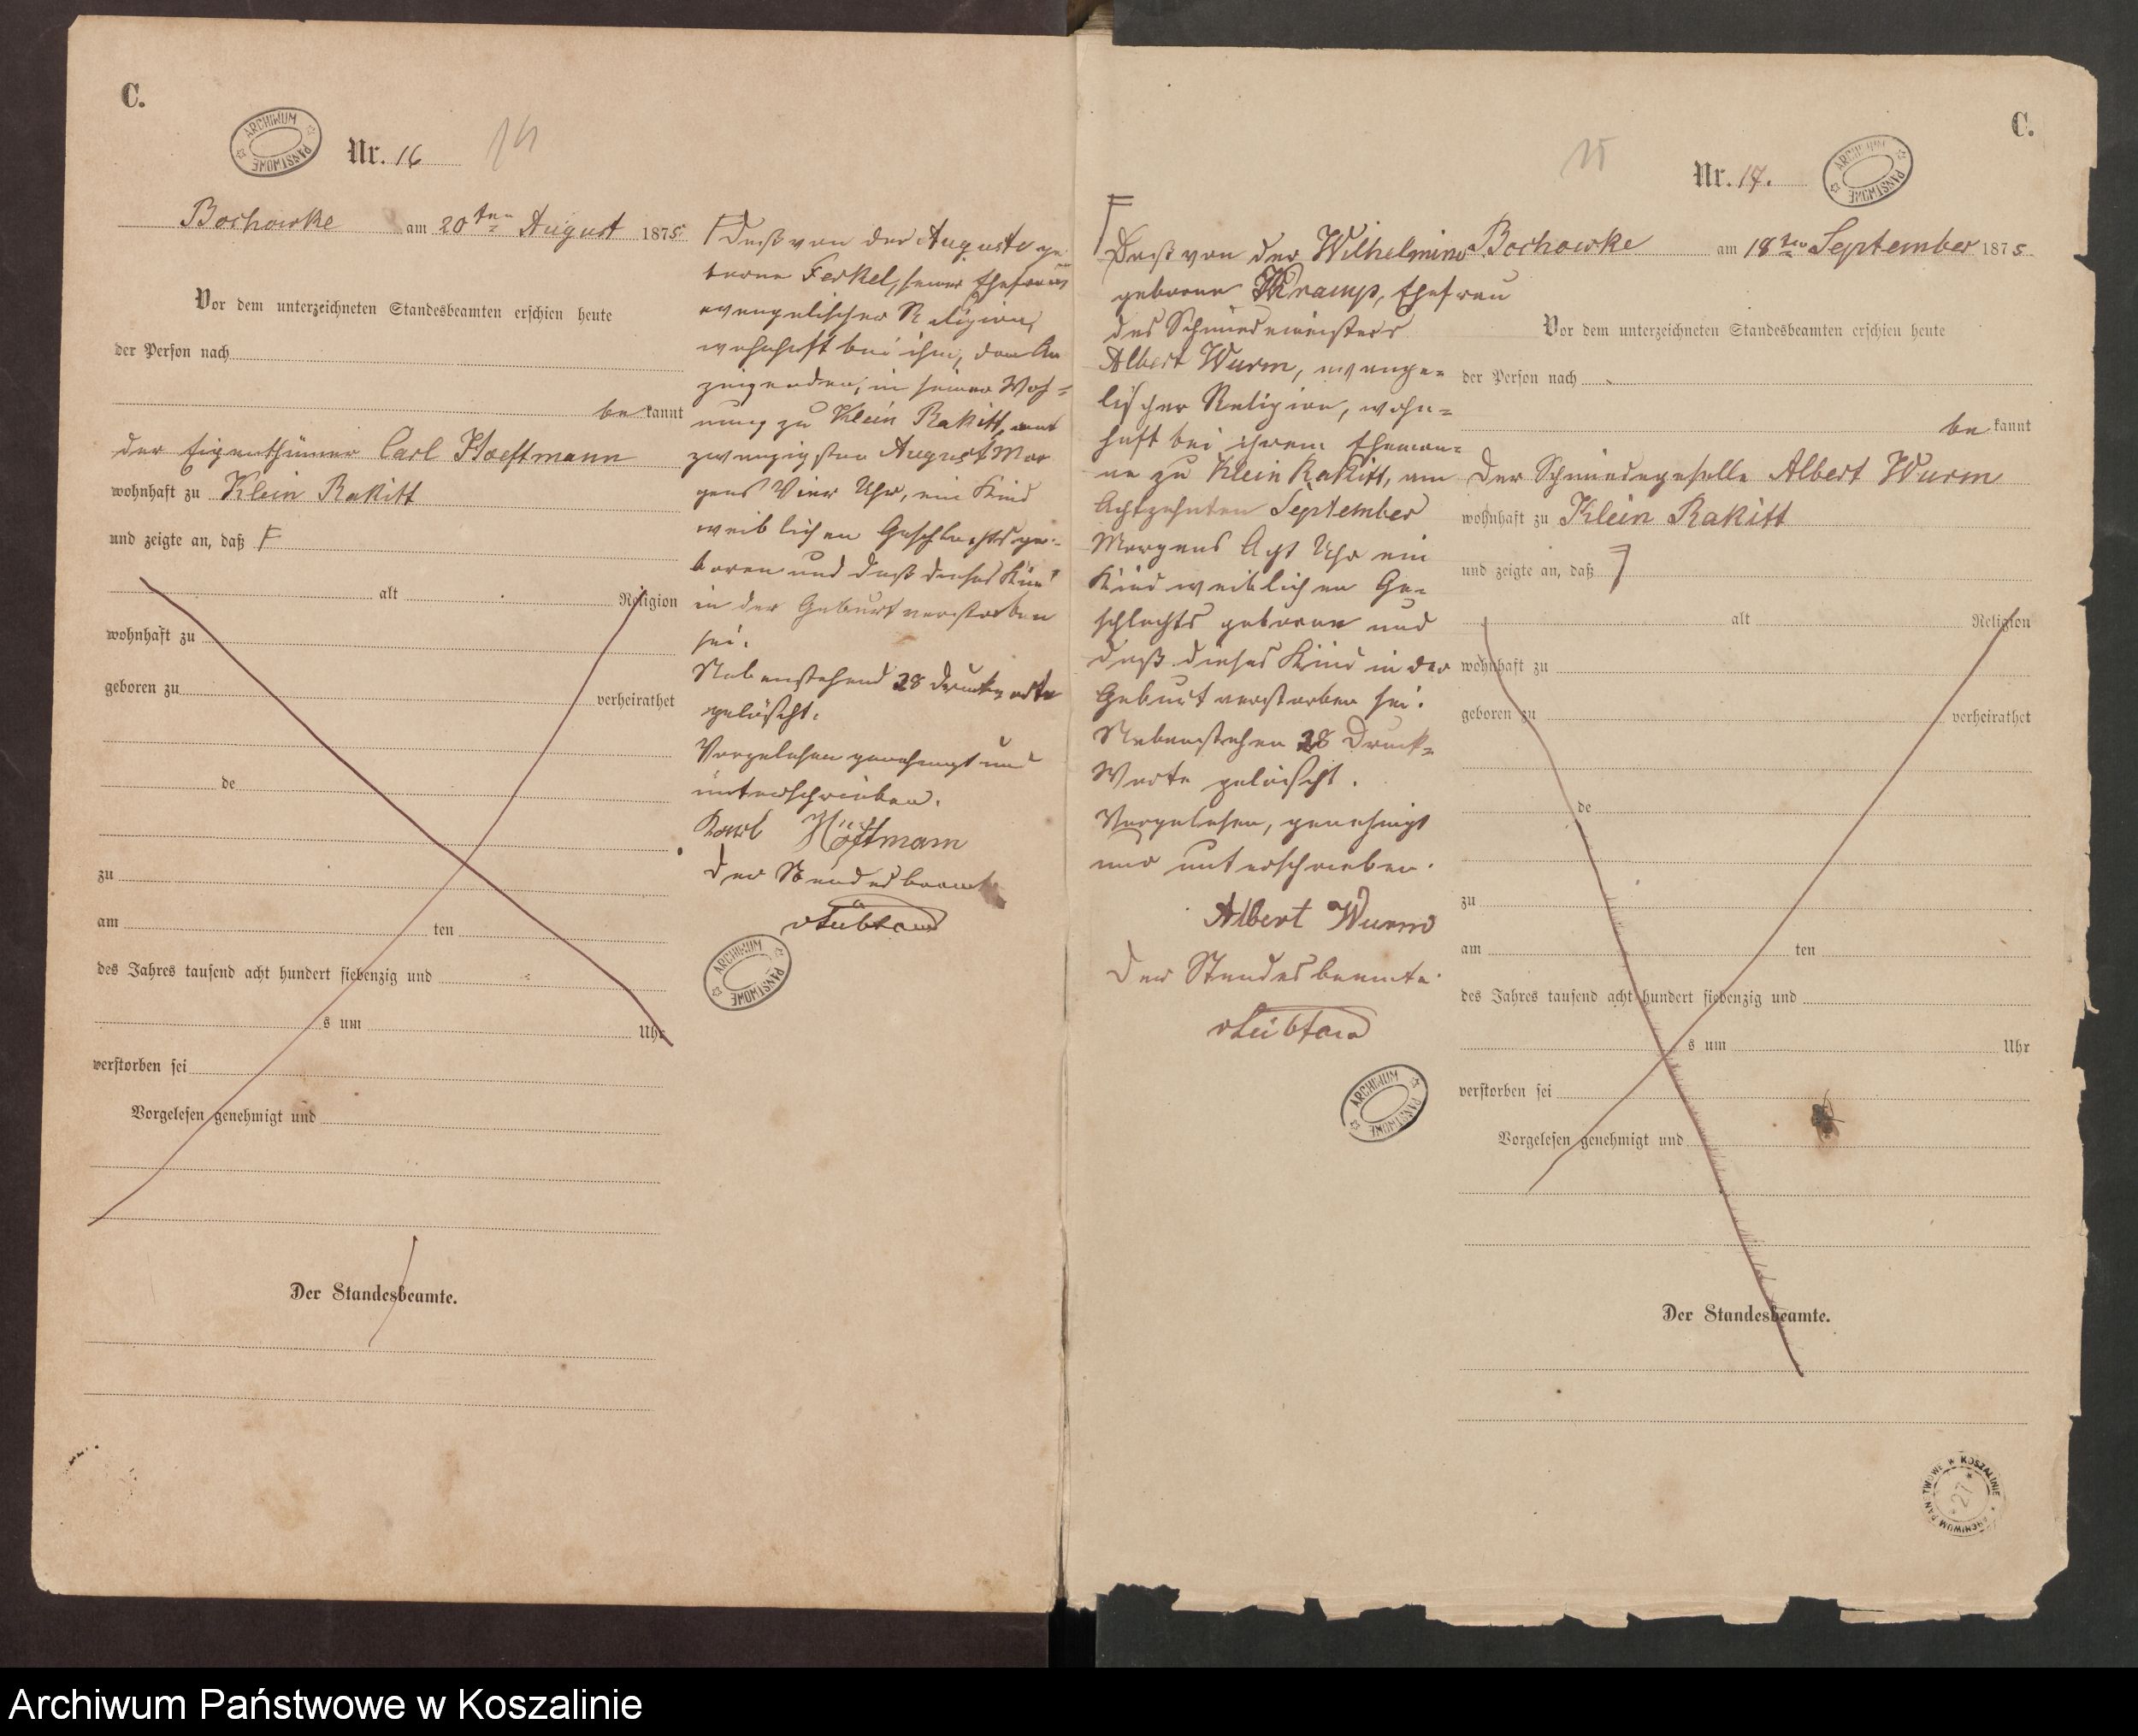 C.
ARCHIWUM PAŃSTWOWE
Nr. 16
14
Bochowke am 20ten August 1875
Vor dem unterzeichneten Standesbeamten erschien heute
der Person nach
be kannt
der Eigenthümer Carl Hoeftmann
wohnhaft zu Klein Rakitt
und zeigte an, daß F
alt Religion
wohnhaft zu
geboren zu
verheirathet
de
zu
am ten
des Jahres tausend acht hundert siebenzig und
s um Uhr
verstorben sei
Vorgelesen genehmigt und
Der Standesbeamte.
F daß von der Auguste ge
borne Ferkel, seiner Ehefrau
evangelischer Religion,
wohnhaft bei ihm, dem An
zeigenden, in seiner Woh=
nung zu Klein Rakitt, am
zwanzigsten August Mor
gens Vier Uhr, ein Kind
weiblichen Geschlechts ge=
boren und daß dieses Kind
in der Geburt verstorben
sei.
Nebenstehend 28 Druckworte
gelöscht.
Vorgelesen genehmigt und
unterschrieben.
Karl Höftmann
Der Standesbeamte
ARCHIWUM PAŃSTWOWE
C.
15
Nr. 17.
ARCHIWUM PAŃSTWOWE
F
Daß von der Wilhelmine
geborne Kramp, Ehefrau
des Schmiedemeisters
Albert Wurm, evange=
lischer Religion, wohn=
haft bei ihrem Eheman=
ne zu Klein Rakitt, am
Achtzehnten September
Morgens Acht Uhr ein
Kind weiblichen Ge=
schlechts geboren und
daß dieses Kind in der
Geburt verstorben sei.
Nebenstehen 28 Druck=
Worte gelöscht.
Vorgelesen, genehmigt
und unterschrieben.
Albert Wurm
Der Standesbeamte.
ARCHIWUM PAŃSTWOWE
Bochowke am 18ten September 1875
Vor dem unterzeichneten Standesbeamten erschien heute
der Person nach
be kannt
Der Schmiedegeselle Albert Wurm
wohnhaft zu Klein Rakitt
und zeigte an, daß
alt Religion
wohnhaft zu
geboren zu
verheirathet
de
zu
am ten
des Jahres tausend acht hundert siebenzig und
s um Uhr
verstorben sei
Vorgelesen genehmigt und
Der Standesbeamte.
ARCHIWUM PAŃSTWOWE W KOSZALINIE
27
Archiwum Państwowe w Koszalinie